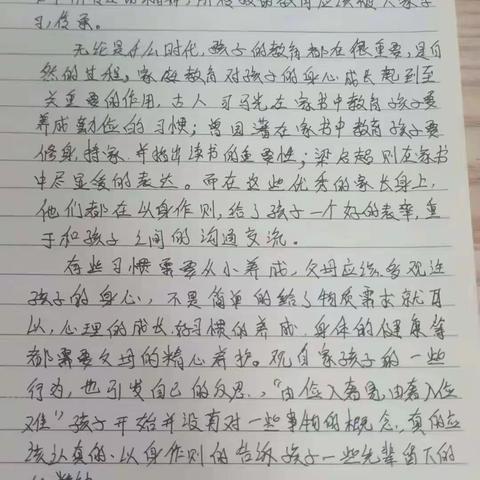 习,传承。
无论是什么时代,孩子的教育都在很重要,是自
然的过程,家庭教育对孩子的身心成长起到至
关重要的作用,古人司马光在家书中教育孩子要
养成勤俭的习惯;曾国藩在家书中教育孩子要
修身,持家,并指出读书的重要性;梁启超则在家书
中尽显爱的表达。而在这些优秀的家长身上,
他们都在以身作则,给了孩子一个好的表率,重
于和孩子之间的沟通交流。
有些习惯需要从小养成,父母应该多观注
孩子的身心,不是简单的给了物质需求就可
以,心理的成长,好习惯的养成,身体的健康等
都需要父母的精心养护。观自家孩子的一些
行为,也引发自己的反思,“由俭入奢易,由奢入俭
难”孩子开始并没有对一些事物的概念,真的应
该认真的、以身作则的告诉孩子一些先辈留下的